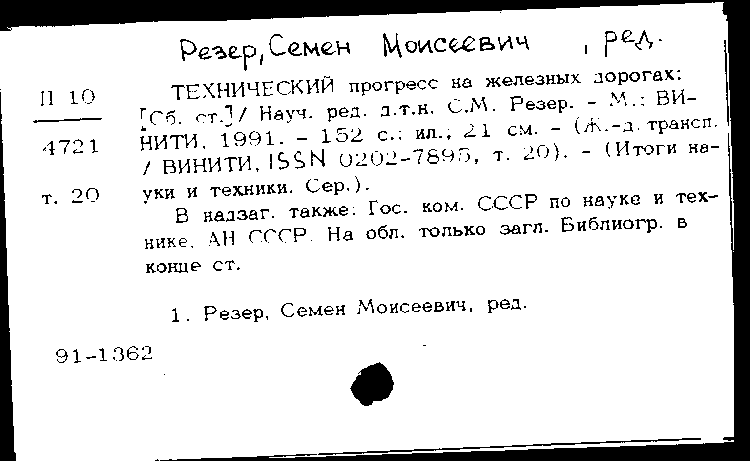 Резер, Семен Моисеевич , ред.
П 10
4721
т. 20
ТЕХНИЧЕСКИЙ прогресс на железных дорогах:
[Сб. ст.] / Науч. ред. д.т.н. С.М. Резер. - М.: ВИ-
НИТИ, 1991. - 152 с.: ил.; 21 см. - (Ж.-д. трансп.
/ ВИНИТИ, ISSN 0202-7895, т. 20). - (Итоги на-
уки и техники. Сер.).
В надзаг. также: Гос. ком. СССР по науке и тех-
нике, АН СССР. На обл. только загл. Библиогр. в
конце ст.
1. Резер, Семен Моисеевич, ред.
91-1362